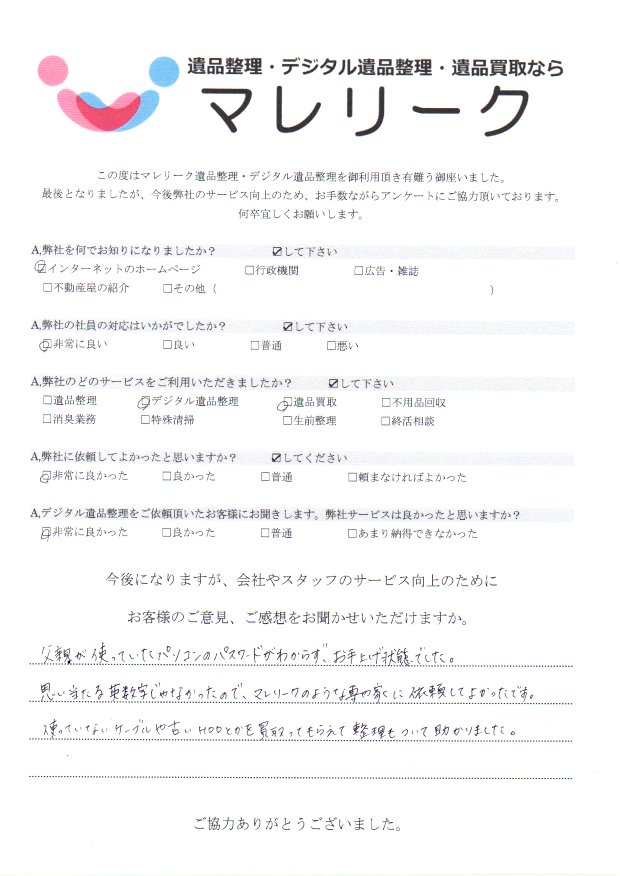 遺品整理・デジタル遺品整理・遺品買取なら
マレリーク
この度はマレリーク遺品整理・デジタル遺品整理を御利用頂き有難う御座いました。
最後となりましたが、今後弊社のサービス向上のため、お手数ながらアンケートにご協力頂いております。
何卒宜しくお願いします。
A,弊社を何でお知りになりましたか？ ☑して下さい
□インターネットのホームページ □行政機関 □広告・雑誌
□不動産屋の紹介 □その他（ ）
A,弊社の社員の対応はいかがでしたか？ ☑して下さい
□非常に良い □良い □普通 □悪い
A,弊社のどのサービスをご利用いただきましたか？ ☑して下さい
□遺品整理 □デジタル遺品整理 □遺品買取 □不用品回収
□消臭業務 □特殊清掃 □生前整理 □終活相談
A,弊社に依頼してよかったと思いますか？ ☑してください
□非常に良かった □良かった □普通 □頼まなければよかった
A,デジタル遺品整理をご依頼頂いたお客様にお聞きします。弊社サービスは良かったと思いますか？
□非常に良かった □良かった □普通 □あまり納得できなかった
今後になりますが、会社やスタッフのサービス向上のために
お客様のご意見、ご感想をお聞かせいただけますか。
父親が使っていたパソコンのパスワードがわからず、お手上げ状態でした。
思い当たる英数字じゃなかったので、マレリークのような専や家くに依頼してよかったです。
使っていないケーブルや古いHDDとかを買取ってもらえて整理もついて助かりました。
ご協力ありがとうございました。